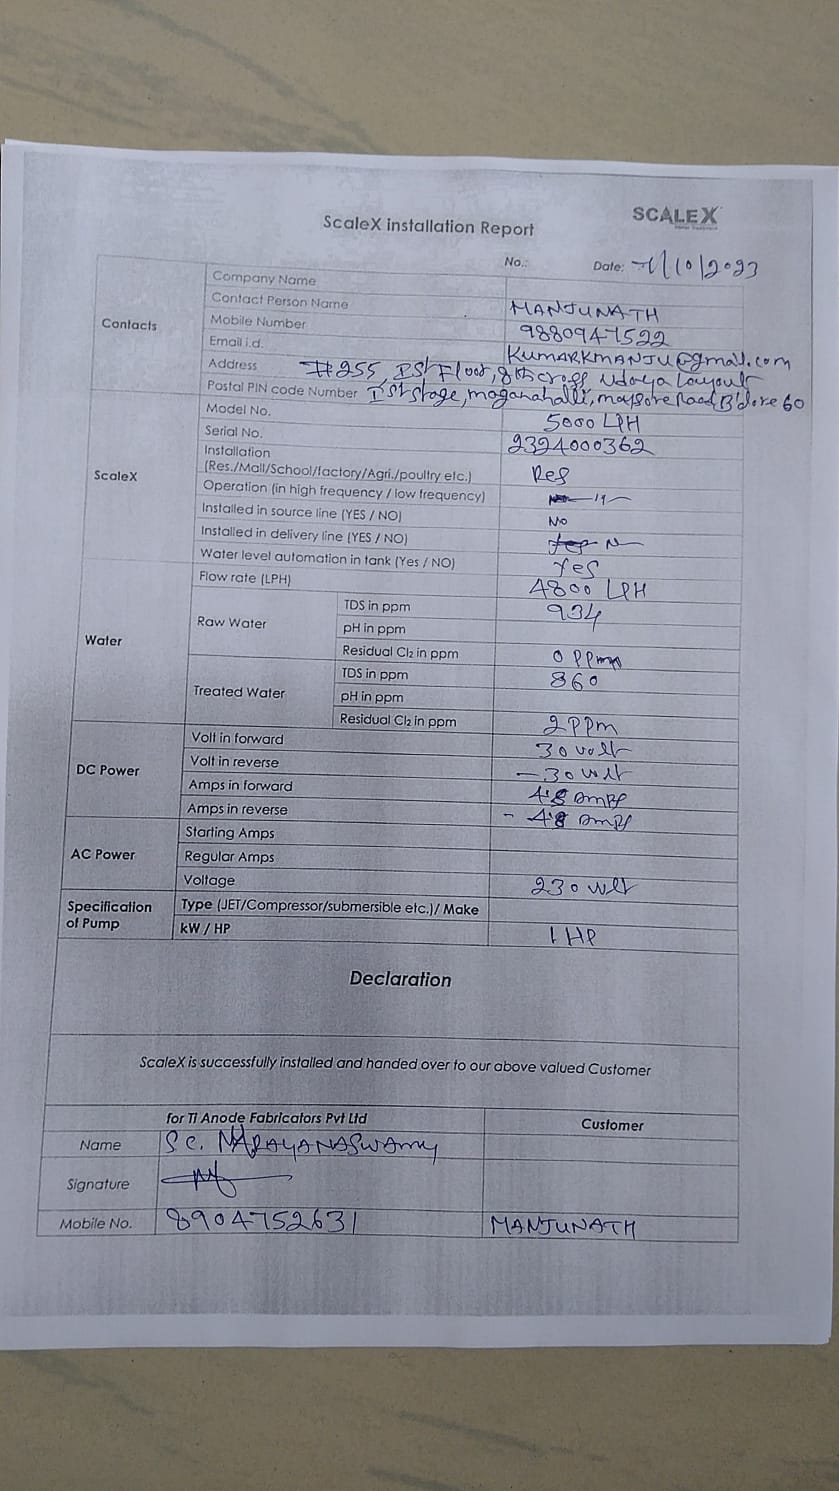 SCALEX
ScaleX installation Report
No.: Date: 7/10/2023
Contacts
Company Name
Contact Person Name MANJUNATH
Mobile Number 9880947522
Email i.d. KUMARKMANJU@gmail.com
Address #255, Ist Floor, 8th cross, Udaya Layout
Postal PIN code Number Ist Stage, maganahalli, maysore Road, B'lore 60
ScaleX
Model No. 5000 LPH
Serial No. 2324000362
Installation
(Res./Mall/School/factory/Agri./poultry etc.) Res
Operation (in high frequency / low frequency)
Installed in source line (YES / NO) NO
Installed in delivery line (YES / NO)
Water level automation in tank (Yes / NO) Yes
Water
Flow rate (LPH) 4800 LPH
Raw Water
TDS in ppm 934
pH in ppm
Residual Cl2 in ppm 0 PPm
Treated Water
TDS in ppm 860
pH in ppm
Residual Cl2 in ppm 2 PPm
DC Power
Volt in forward 30 volt
Volt in reverse - 30 volt
Amps in forward 4.8 Amps
Amps in reverse - 4.8 Amps
AC Power
Starting Amps
Regular Amps
Voltage 230 volt
Specification
of Pump
Type (JET/Compressor/submersible etc.)/ Make
kW / HP 1 HP
Declaration
ScaleX is successfully installed and handed over to our above valued Customer
for TI Anode Fabricators Pvt Ltd Customer
Name S.C. NARAYANASWAmy
Signature
Mobile No. 8904752631 MANJUNATH